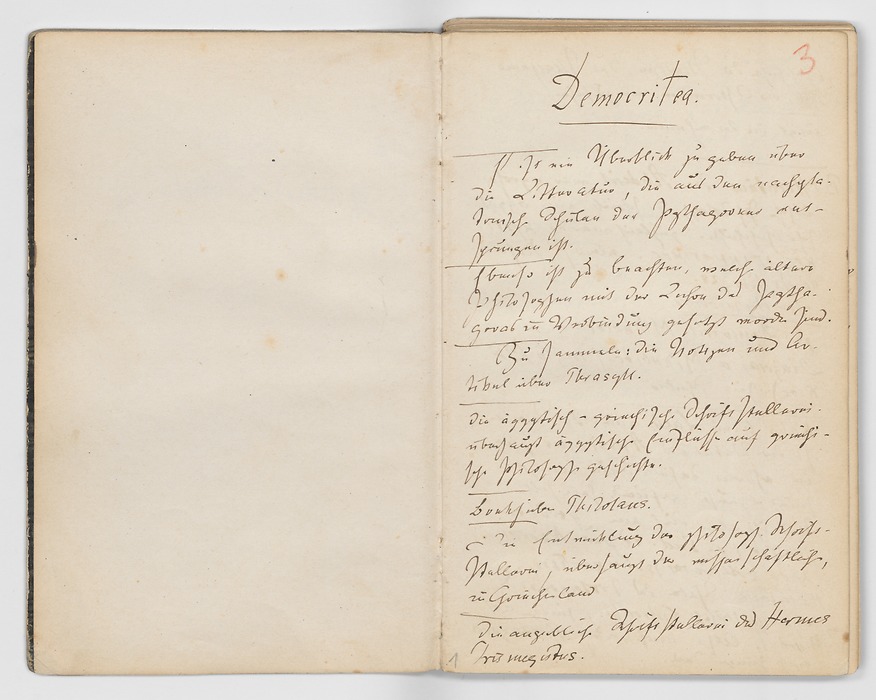 3
Democritea.
Es ist ein Überblick zu geben über
die Litteratur, die aus den nachpla-
tonisch. Schulen der Pythagoreer ent-
sprungen ist.
Ebenso ist zu beachten, welche ältere
Philosophen mit der Lehre des Pytha-
goras in Verbindung gesetzt worden sind.
Zu sammeln: die Notizen und Ar-
tikel über Thrasyll.
die ägyptisch-griechische Schriftstellerei.
überhaupt ägyptische Einflüsse auf griechi-
sche Philosophiegeschichte.
Boeckh über Philolaus.
die Entwicklung der philosoph. Schrift-
stellerei, überhaupt der wissenschaftlichen,
in Griechenland
Die angebliche Schriftstellerei des Hermes
Trismegistos.
1